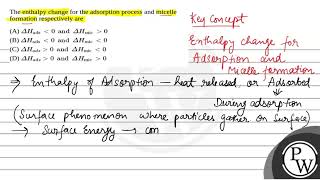 The enthalpy change for the adsorption process and micelle
formation respectively are
(A) ΔHads < 0 and ΔHmic > 0
(B) ΔHads > 0 and ΔHmic < 0
(C) ΔHads < 0 and ΔHmic < 0
(D) ΔHads > 0 and ΔHmic > 0
Key Concept
Enthalpy change for
Adsorption and
Micelle formation
⇒ Enthalpy of Adsorption — heat released or Adsorbed
During adsorption
(Surface phenomenon where particles gather on Surface)
→ Surface Energy → con
PW